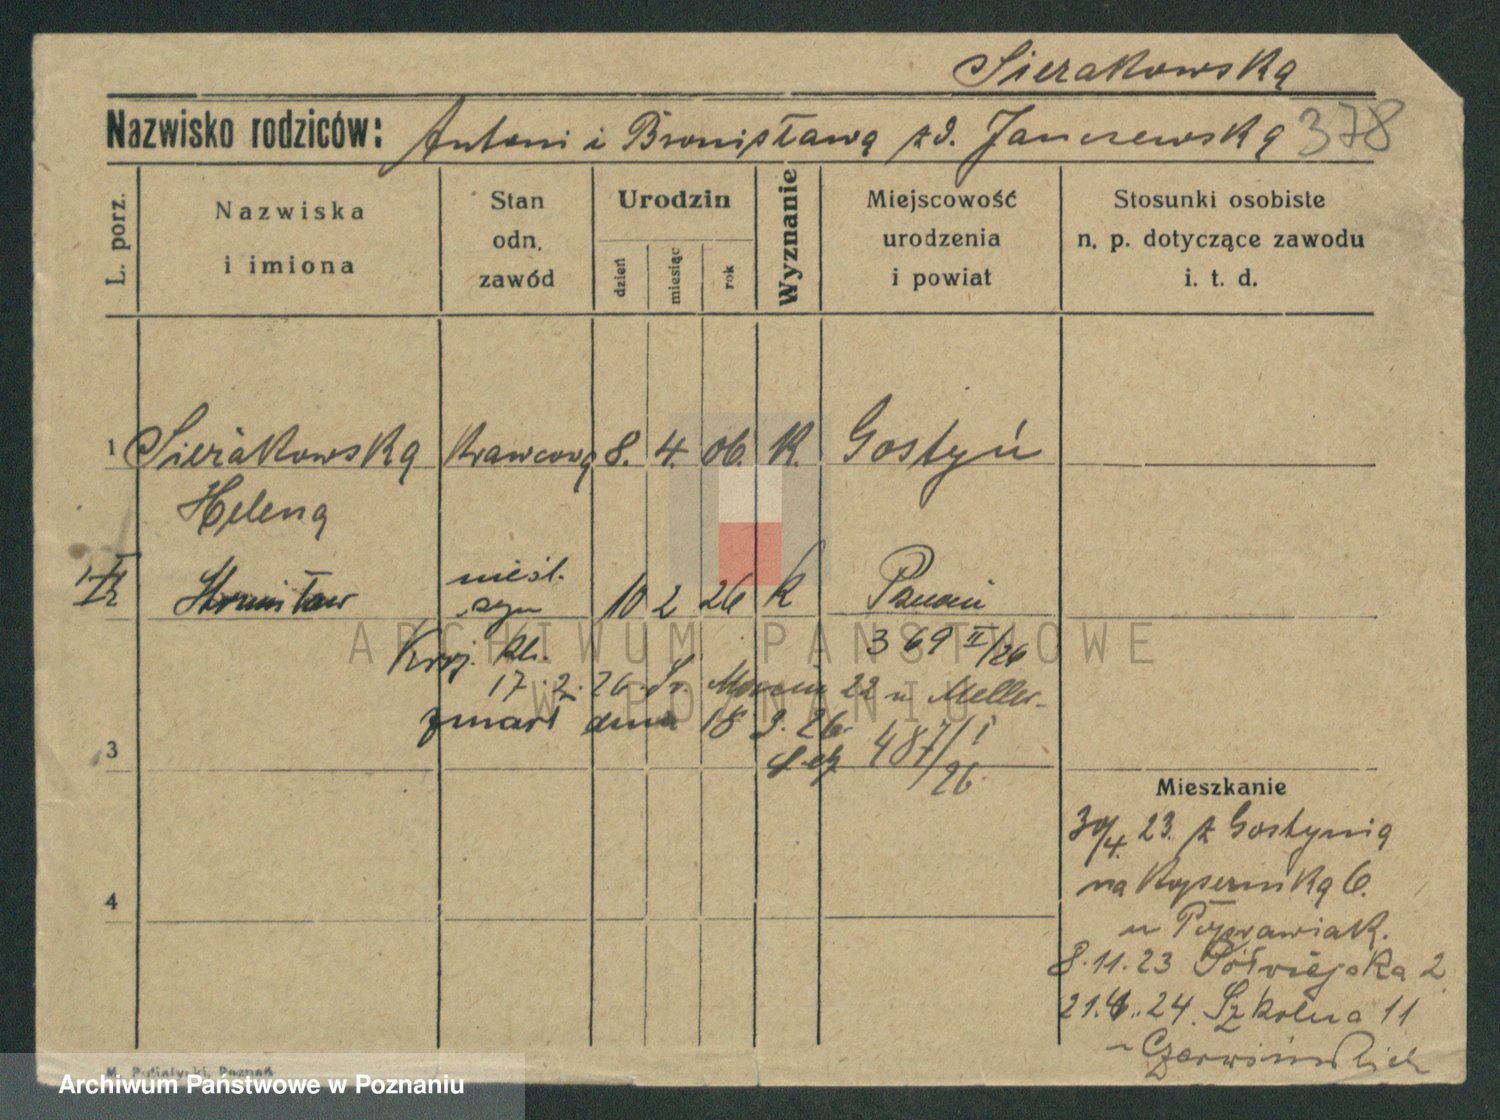 Sierakowska
Nazwisko rodziców: Antoni i Bronisława zd. Janczewska 378
L. porz.
Nazwiska i imiona
Stan odn. zawód
Urodzin
dzień miesiąc rok
Wyznanie
Miejscowość urodzenia i powiat
Stosunki osobiste n. p. dotyczące zawodu i. t. d.
1 Sierakowska Krawcowa 8. 4. 06. K. Gostyń
Helena
nieśl.
syn 10 2 26 K
369 II/26
17. 2. 26 Św. Marcin 22 u Meller-
zmarł dnia 18 2. 26.
3 487/I
26.
Mieszkanie
30/4. 23. z Gostynia
na 6.
4
u Poprawiak.
8.11.23 Półwiejska 2
21.4.24. Szkolna 11
ARCHIWUM PAŃSTWOWE
W POZNANIU
Poznań
Archiwum Państwowe w Poznaniu